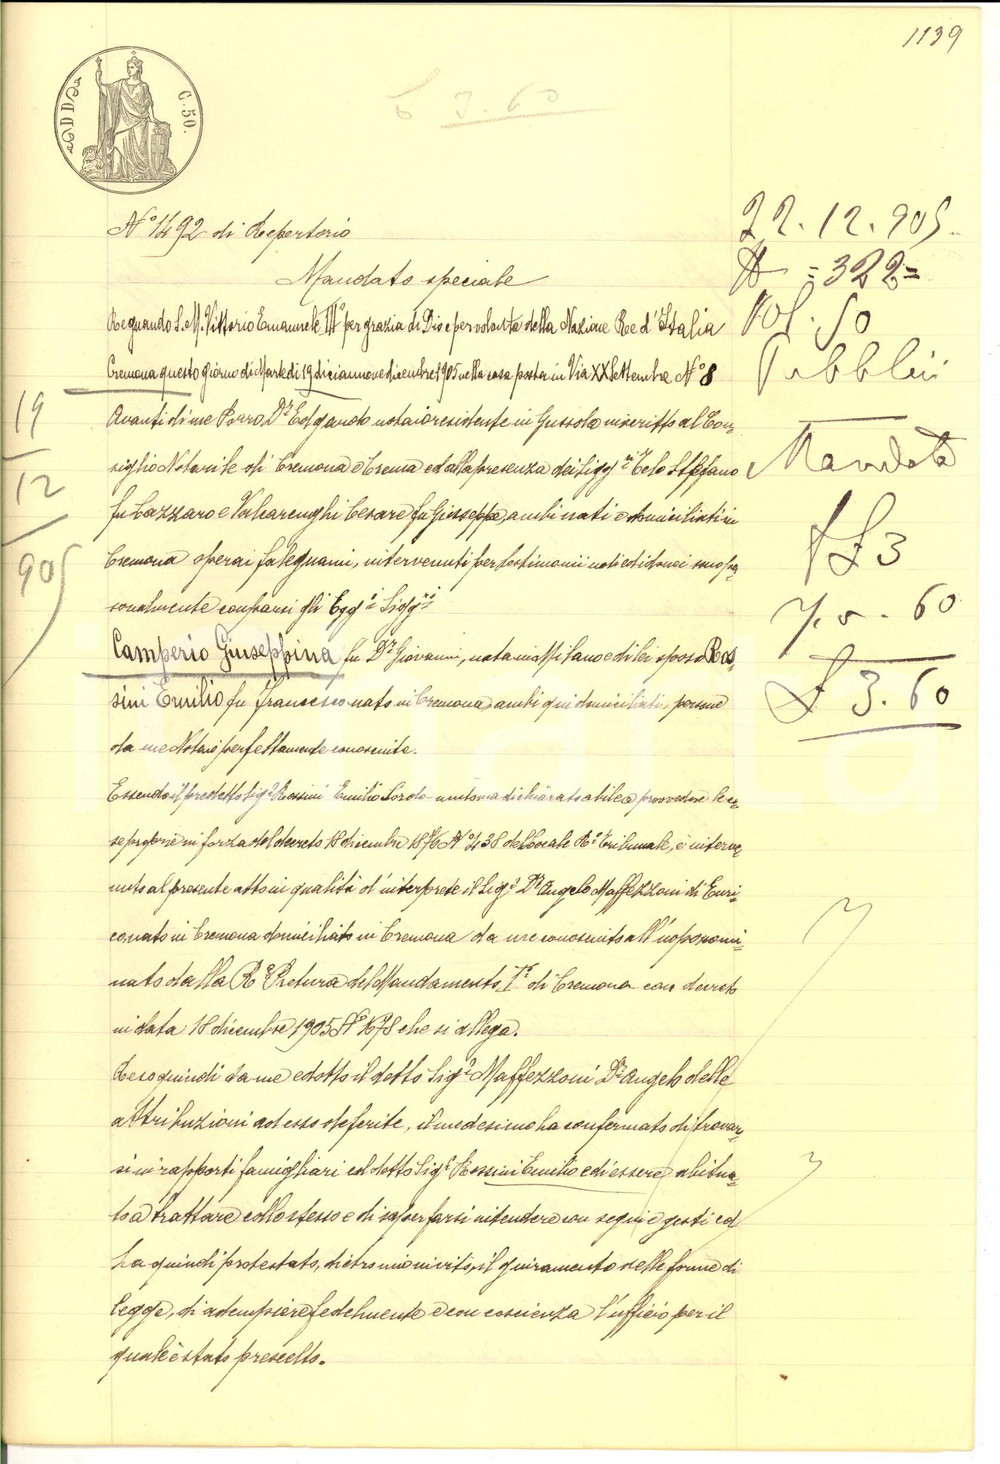 1139
ADDA
C. 50.
£ 3.60
N° 1492 di Repertorio
Mandato speciale
Regnando S. M. Vittorio Emanuele III° per grazia di Dio e per volontà della Nazione Re d'Italia
Cremona questo giorno di Martedi 19 diciannove dicembre 1905 nella casa posta in Via XX Settembre N° 8
Avanti di me Porro Dr Edgardo notaio residente in Gussola inscritto al Con-
siglio Notarile di Cremona e Crema ed alla presenza dei Sigg.ri Telo Stefano
fu Lazzaro e Valcarenghi Cesare fu Giuseppe, ambi nati e domiciliati in
Cremona operai falegnami, intervenuti per testimonii noti ed idonei sono per-
sonalmente comparsi gli Egg.i Sigg.i
Camperio Giuseppina fu Dr Giovanni, nata in Milano e di lei sposo Ros-
sini Emilio fu Francesco nato in Cremona ambi qui domiciliati, persone
da me Notaio perfettamente conosciute.
Essendo il predetto Sig.r Rossini Emilio Sordo muto ma dichiarato abile a provvedere le co-
se proprie in forza del decreto 18 dicembre 1876 N° 438 del Locale R.° Tribunale, è interve-
nuto al presente atto in qualità d'interprete il Sig.r Dr Angelo Maffezzoni di Enri-
co nato in Cremona domiciliato in Cremona da me conosciuto all'uopo nomi-
nato dalla R.a Pretura del Mandamento I° di Cremona con decreto
in data 18 dicembre 1905 N° 1678 che si allega.
Reso quindi da me edotto il detto Sig.r Maffezzoni Dr Angelo delle
attribuzioni ad esso deferite, il medesimo ha confermato di trovar-
si in rapporti famigliari col detto Sig.r Rossini Emilio e di essere abitua-
to a trattare collo stesso e di saper farsi intendere con segni e gesti ed
ha quindi prestato, dietro mio invito, il giuramento nelle forme di
legge, di adempiere fedelmente e con coscienza l'ufficio per il
quale è stato prescelto.
19
12
905
22.12.905.
N =322=
Vol. 50
Pubblici
Mandato
£ 3
60
£ 3.60